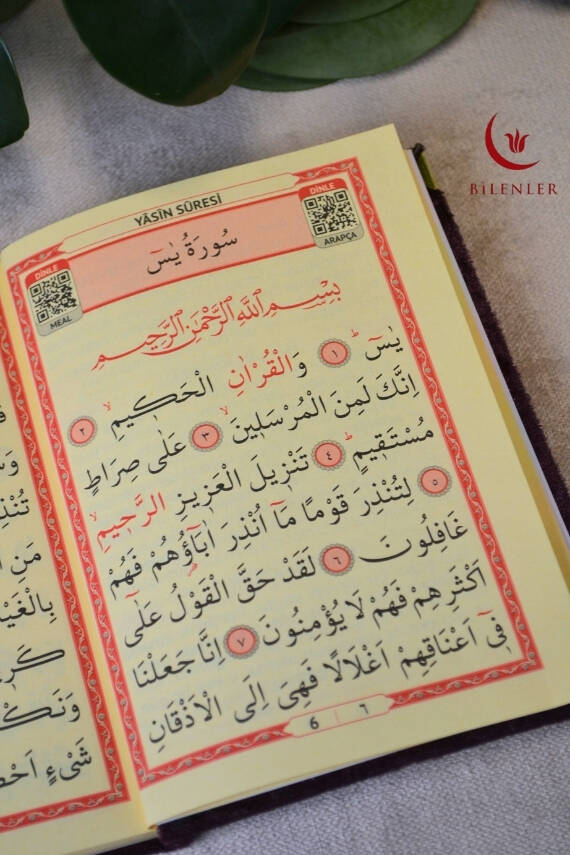 BİLENLER
YÂSİN SÛRESİ
DİNLE
ARAPÇA
DİNLE
MEAL
سُورَةُ يٰسٓ
بِسْمِ اللّٰهِ الرَّحْمٰنِ الرَّحِيمِ
يٰسٓ ۜ ﴿١﴾ وَالْقُرْاٰنِ الْحَك۪يمِۙ ﴿٢﴾
اِنَّكَ لَمِنَ الْمُرْسَل۪ينَۙ ﴿٣﴾ عَلٰى صِرَاطٍ
مُسْتَق۪يمٍۜ ﴿٤﴾ تَنْز۪يلَ الْعَز۪يزِ الرَّح۪يمِۙ
﴿٥﴾ لِتُنْذِرَ قَوْمًا مَٓا اُنْذِرَ اٰبَٓاؤُهُمْ فَهُمْ
غَافِلُونَ ﴿٦﴾ لَقَدْ حَقَّ الْقَوْلُ عَلٰٓى
اَكْثَرِهِمْ فَهُمْ لَا يُؤْمِنُونَ ﴿٧﴾ اِنَّا جَعَلْنَا
ف۪ٓي اَعْنَاقِهِمْ اَغْلَالًا فَهِيَ اِلَى الْاَذْقَانِ
6 | ٦
مَنِ
بِالْغَيْ
شَيْءٍ